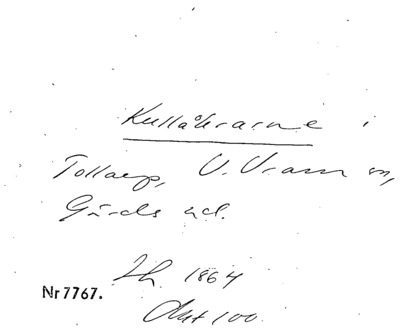 Kullåkrarne i
Tollarp, V. Vram sn,
Gärds hd.
Lh. 1864
Nr 7767.
Akt 100.